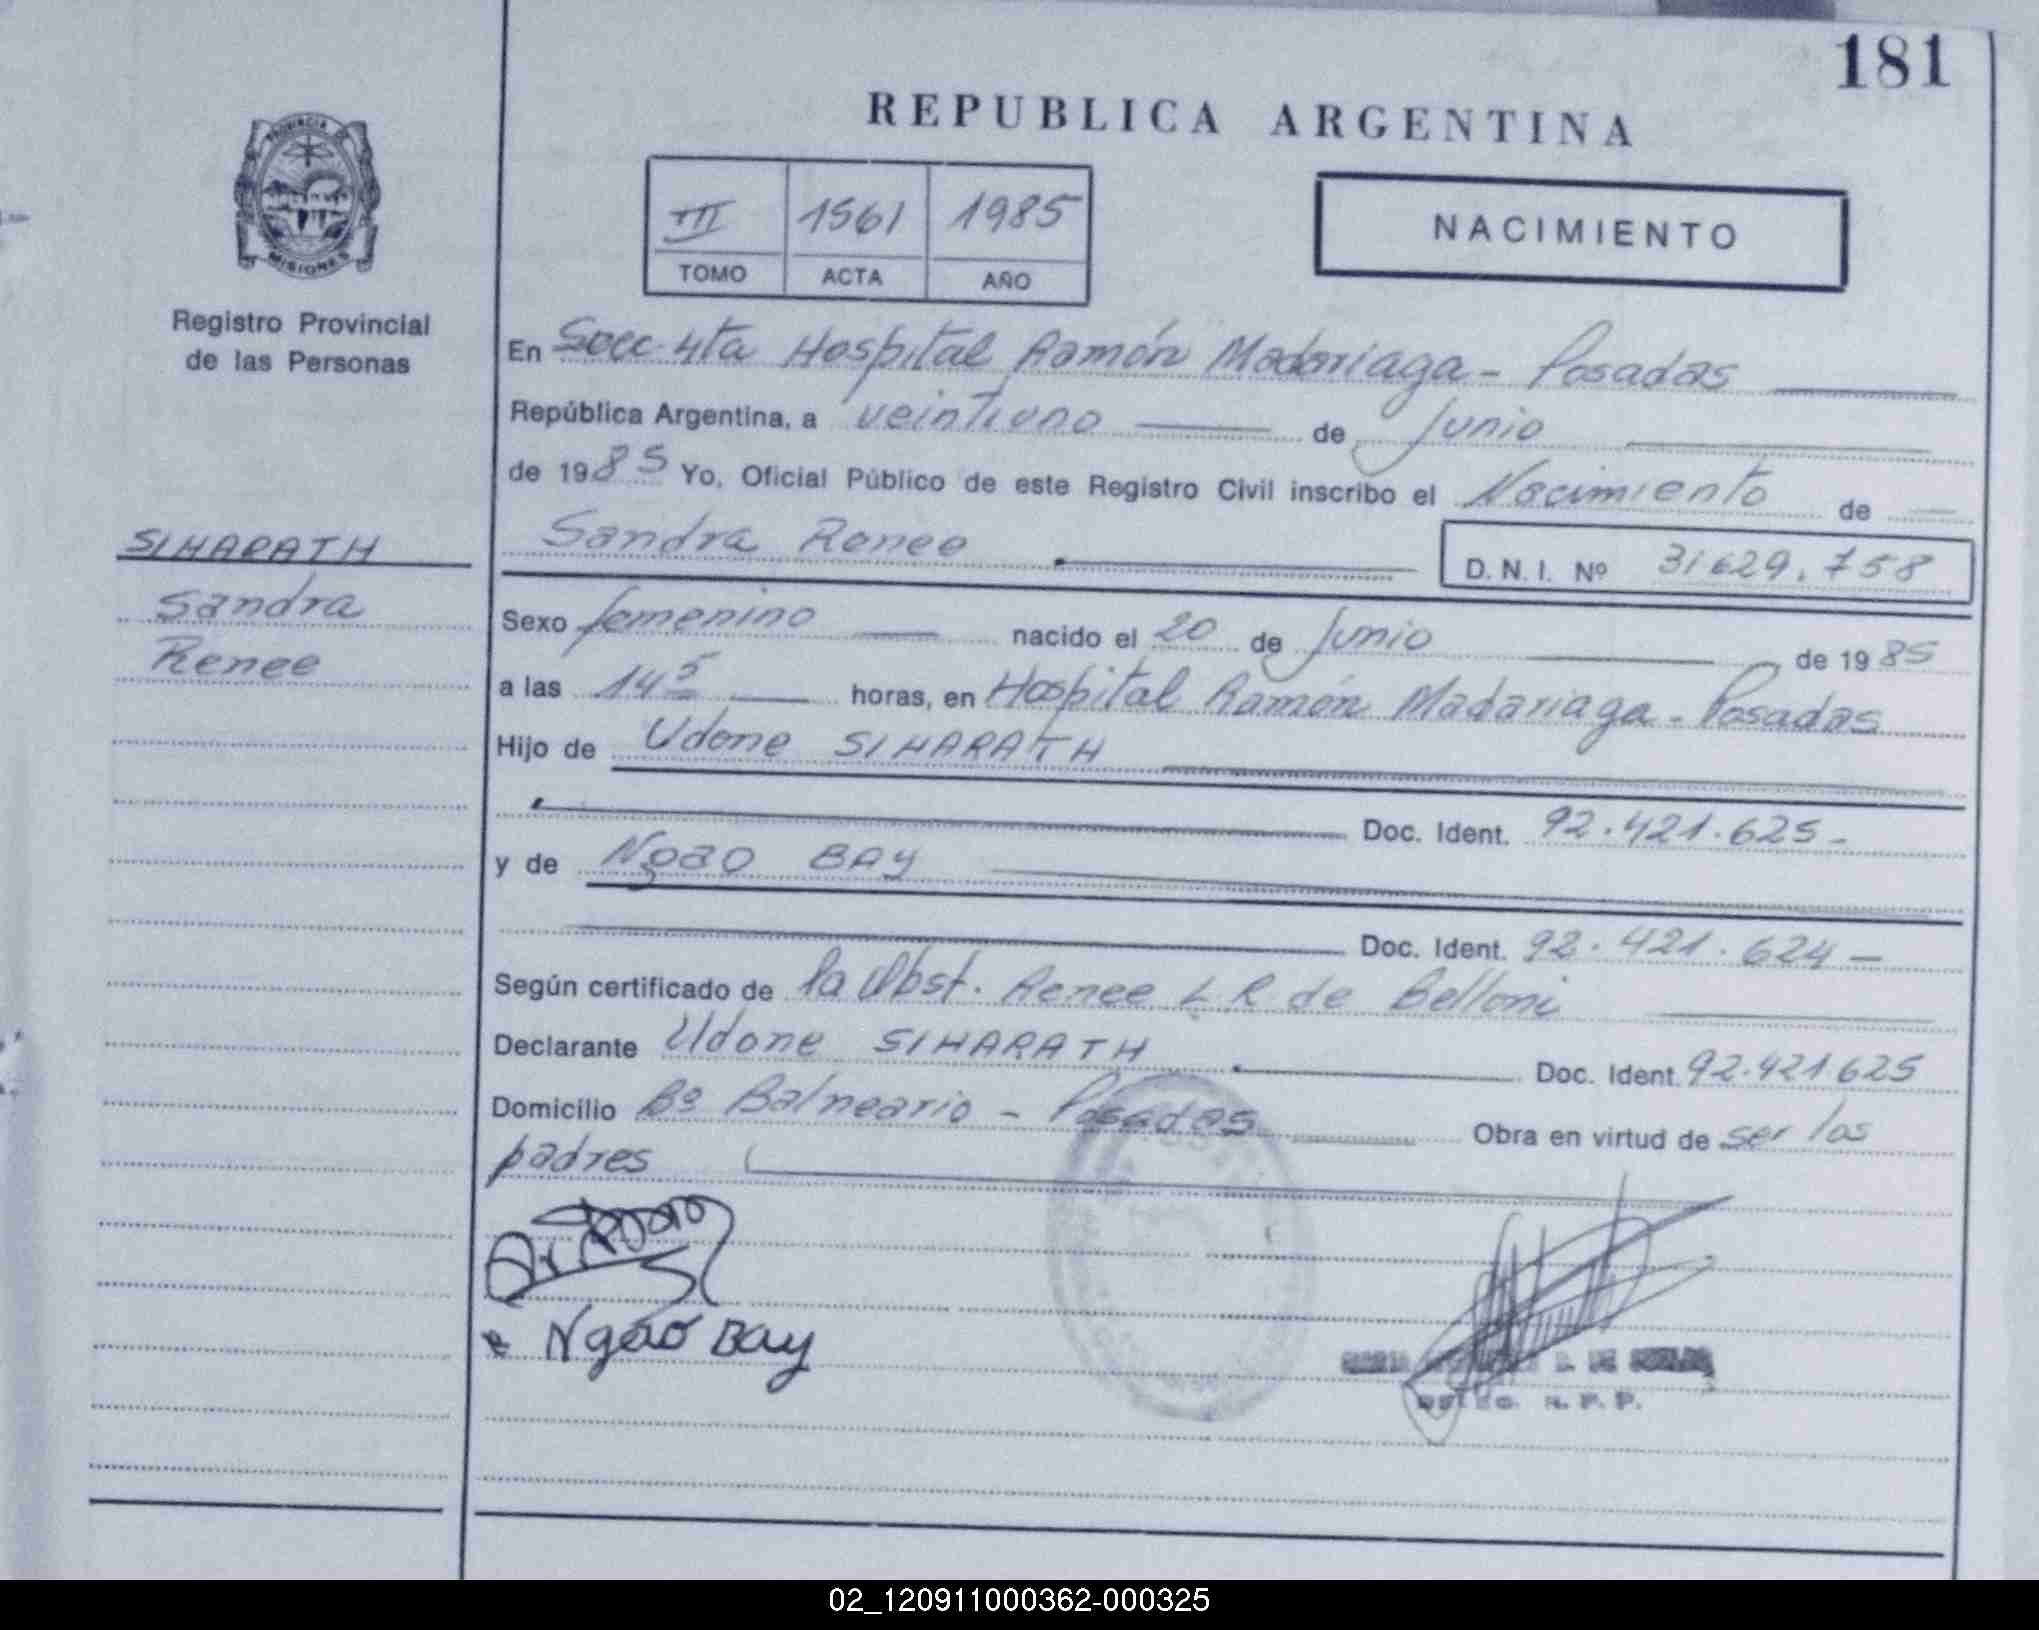 181
REPUBLICA ARGENTINA
PROVINCIA DE
MISIONES
Registro Provincial
de las Personas
III 1561 1985
TOMO ACTA AÑO
NACIMIENTO
En Secc 4ta Hospital Ramón Madariaga - Posadas
República Argentina, a veintiuno de Junio
de 1985 Yo, Oficial Público de este Registro Civil inscribo el Nacimiento de
Sandra Renee D.N.I. Nº 31629.758
SIHARATH
Sandra
Renee
Sexo femenino nacido el 20 de Junio de 1985
a las 14 5 horas, en Hospital Ramón Madariaga - Posadas
Hijo de Udone SIHARATH
Doc. Ident. 92.421.625-
y de Ngao BAY
Doc. Ident. 92.421.624-
Según certificado de la Obst. Renee L R de Belloni
Declarante Udone SIHARATH Doc. Ident. 92.421625
Domicilio Bº Balneario - Posadas Obra en virtud de ser los
padres
Ngao Bay
R. P. P.
02_120911000362-000325